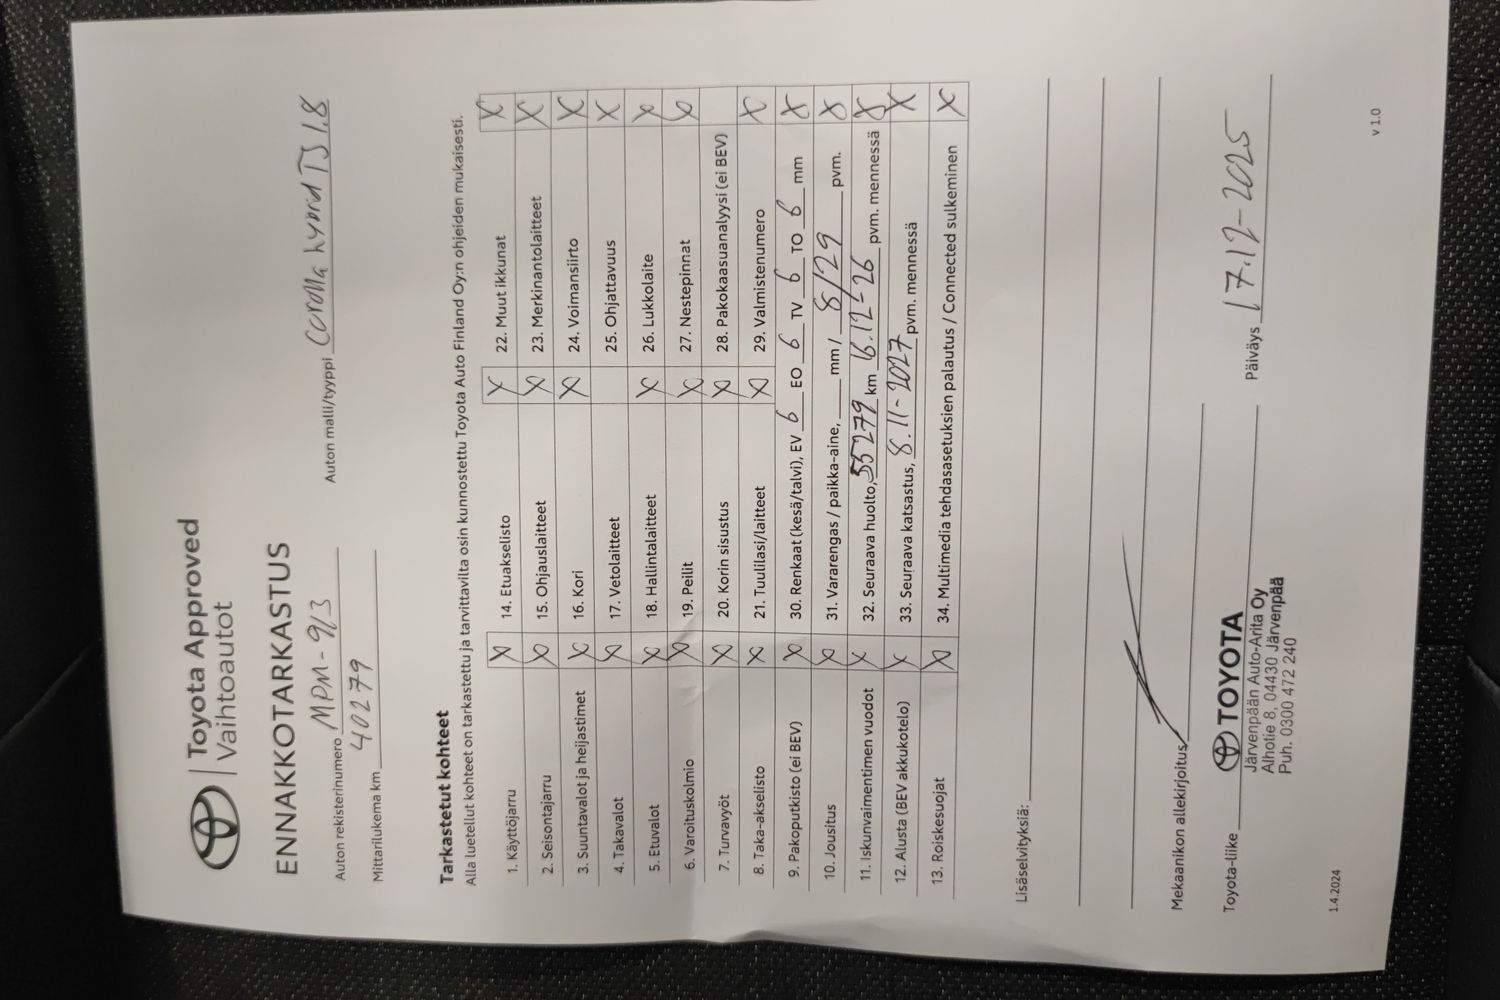 Toyota Approved
Vaihtoautot
ENNAKKOTARKASTUS
Auton rekisterinumero MPM-913 Auton malli/tyyppi Corolla hybrid TS 1.8
Mittarilukema km 40279
Tarkastetut kohteet
Alla luetellut kohteet on tarkastettu ja tarvittavilta osin kunnostettu Toyota Auto Finland Oy:n ohjeiden mukaisesti.
1. Käyttöjarru X 14. Etuakselisto X 22. Muut ikkunat X
2. Seisontajarru X 15. Ohjauslaitteet X 23. Merkinantolaitteet X
3. Suuntavalot ja heijastimet X 16. Kori X 24. Voimansiirto X
4. Takavalot X 17. Vetolaitteet 25. Ohjattavuus X
5. Etuvalot X 18. Hallintalaitteet X 26. Lukkolaite X
6. Varoituskolmio X 19. Peilit X 27. Nestepinnat X
7. Turvavyöt X 20. Korin sisustus X 28. Pakokaasuanalyysi (ei BEV)
8. Taka-akselisto X 21. Tuulilasi/laitteet X 29. Valmistenumero X
9. Pakoputkisto (ei BEV) X 30. Renkaat (kesä/talvi), EV 6 EO 6 TV 6 TO 6 mm X
10. Jousitus X 31. Vararengas / paikka-aine, mm / 8/29 pvm. X
11. Iskunvaimentimen vuodot X 32. Seuraava huolto, 55279 km 16.12-26 pvm. mennessä X
12. Alusta (BEV akkukotelo) X 33. Seuraava katsastus, 8.11-2027 pvm. mennessä X
13. Roiskesuojat X 34. Multimedia tehdasasetuksien palautus / Connected sulkeminen X
Lisäselvityksiä:
Mekaanikon allekirjoitus
Toyota-liike TOYOTA Päiväys 17.12-2025
Järvenpään Auto-Arita Oy
Alhotie 8, 04430 Järvenpää
Puh. 0300 472 240
1.4.2024 v 1.0